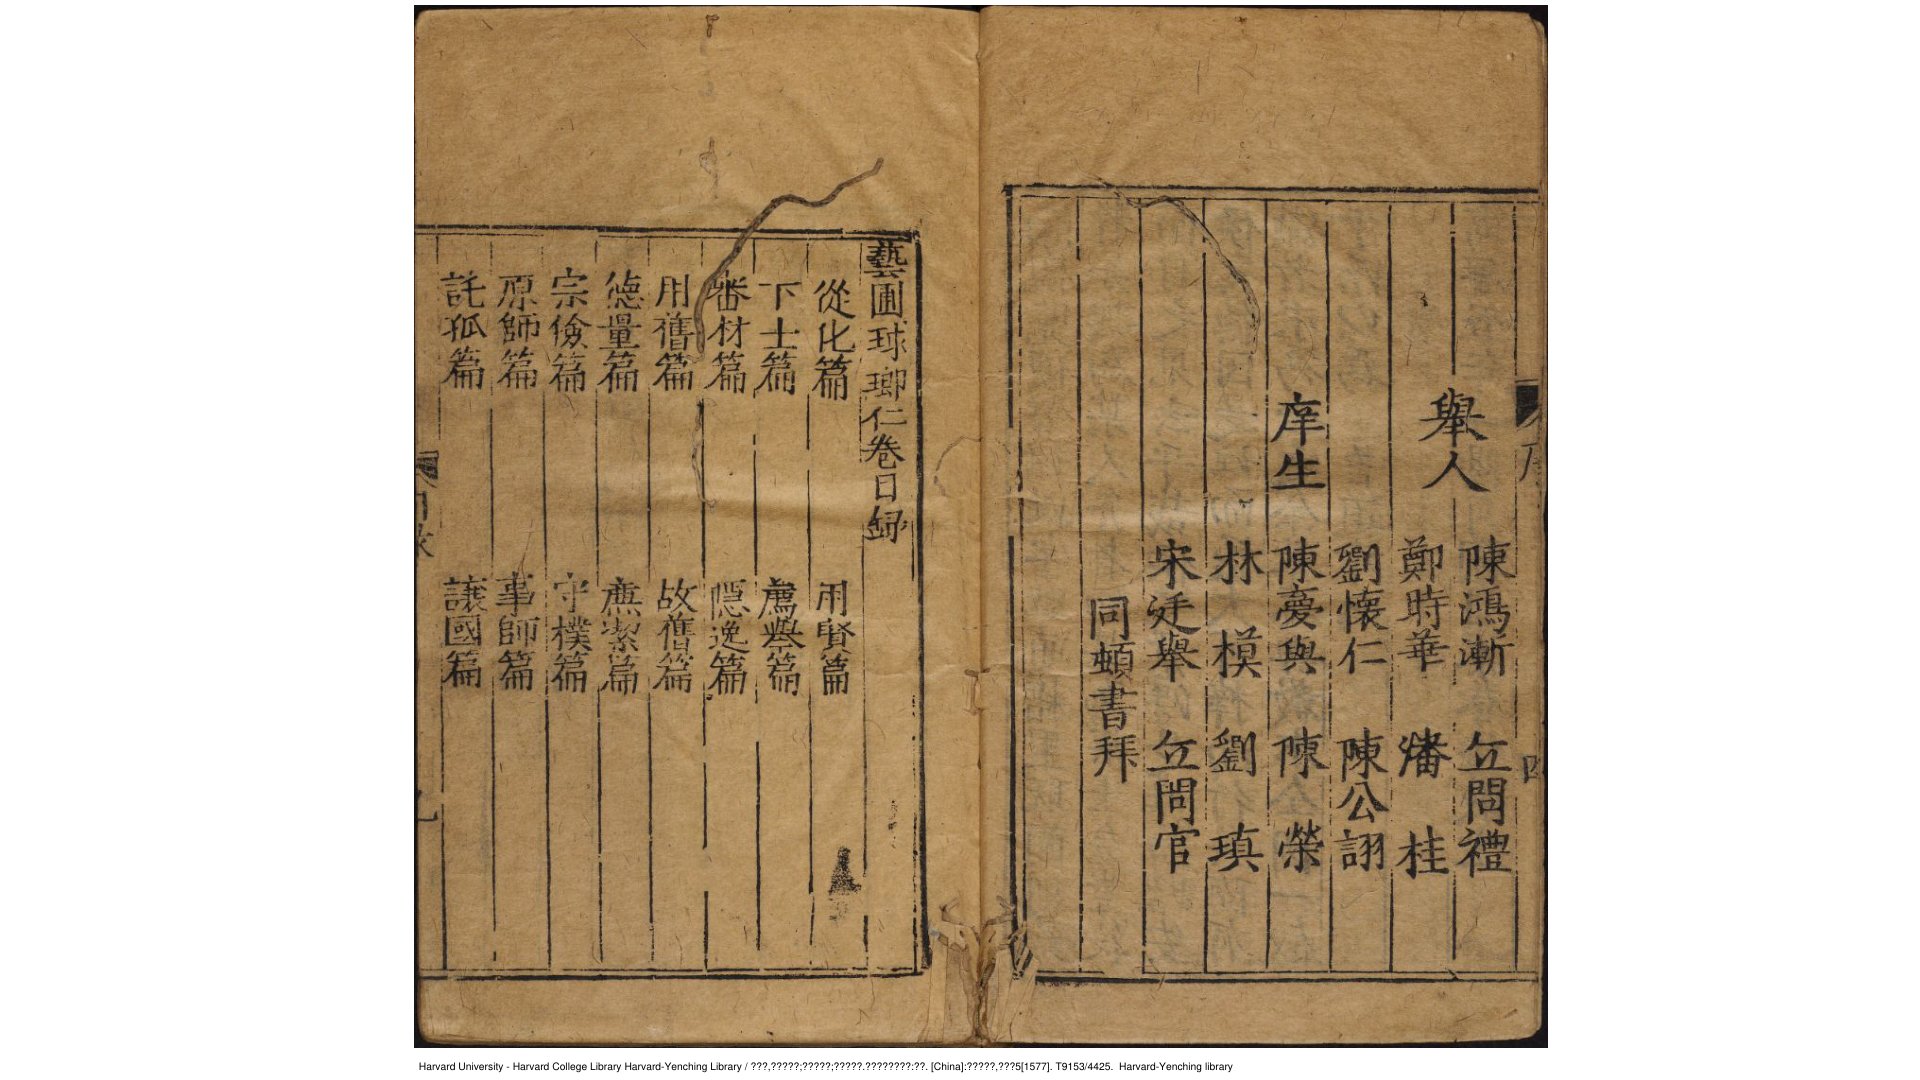 舉人
陳鴻漸 丘問禮
鄭時華 潘桂
劉懷仁 陳公詡
庠生
陳憂與 陳榮
林模 劉瑱
宋廷舉 丘問官
同頓書拜
藝圃球瑯仁卷目録
從化篇 用賢篇
下士篇 薦舉篇
審材篇 隱逸篇
用舊篇 故舊篇
德量篇 廉潔篇
宗儉篇 守樸篇
原師篇 事師篇
託孤篇 讓國篇
Harvard University - Harvard College Library Harvard-Yenching Library / ???,?????;?????;?????.????????:??. [China]:?????,???5[1577]. T9153/4425. Harvard-Yenching library